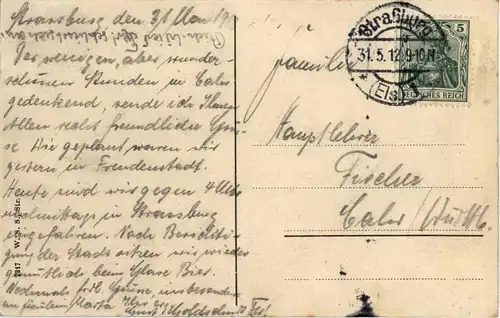 Strassburg den 31. Mai 19
Der wenigen, aber wunder-
schönen Stunden in Calw
gedenkend, sende ich Ihnen
Allen recht freundliche Grüs-
se. Wie geplant, waren wir
gestern in Freudenstadt.
Heute sind wir gegen 4 Uhr
nachmittags in Strassburg
eingefahren. Nach Besichti-
gung der Stadt sitzen wir wieder
gemütlich beim Glase Bier.
Nochmals frdl. Grüsse, insbesonders
an Fräulein Marta
7317 W. S. S. Str.
Familie
Hauptlehrer
Fischer
Calw /Württb.
Straßburg
31.5.12 9-10 N
* (Els) 1
5
DEUTSCHES REICH